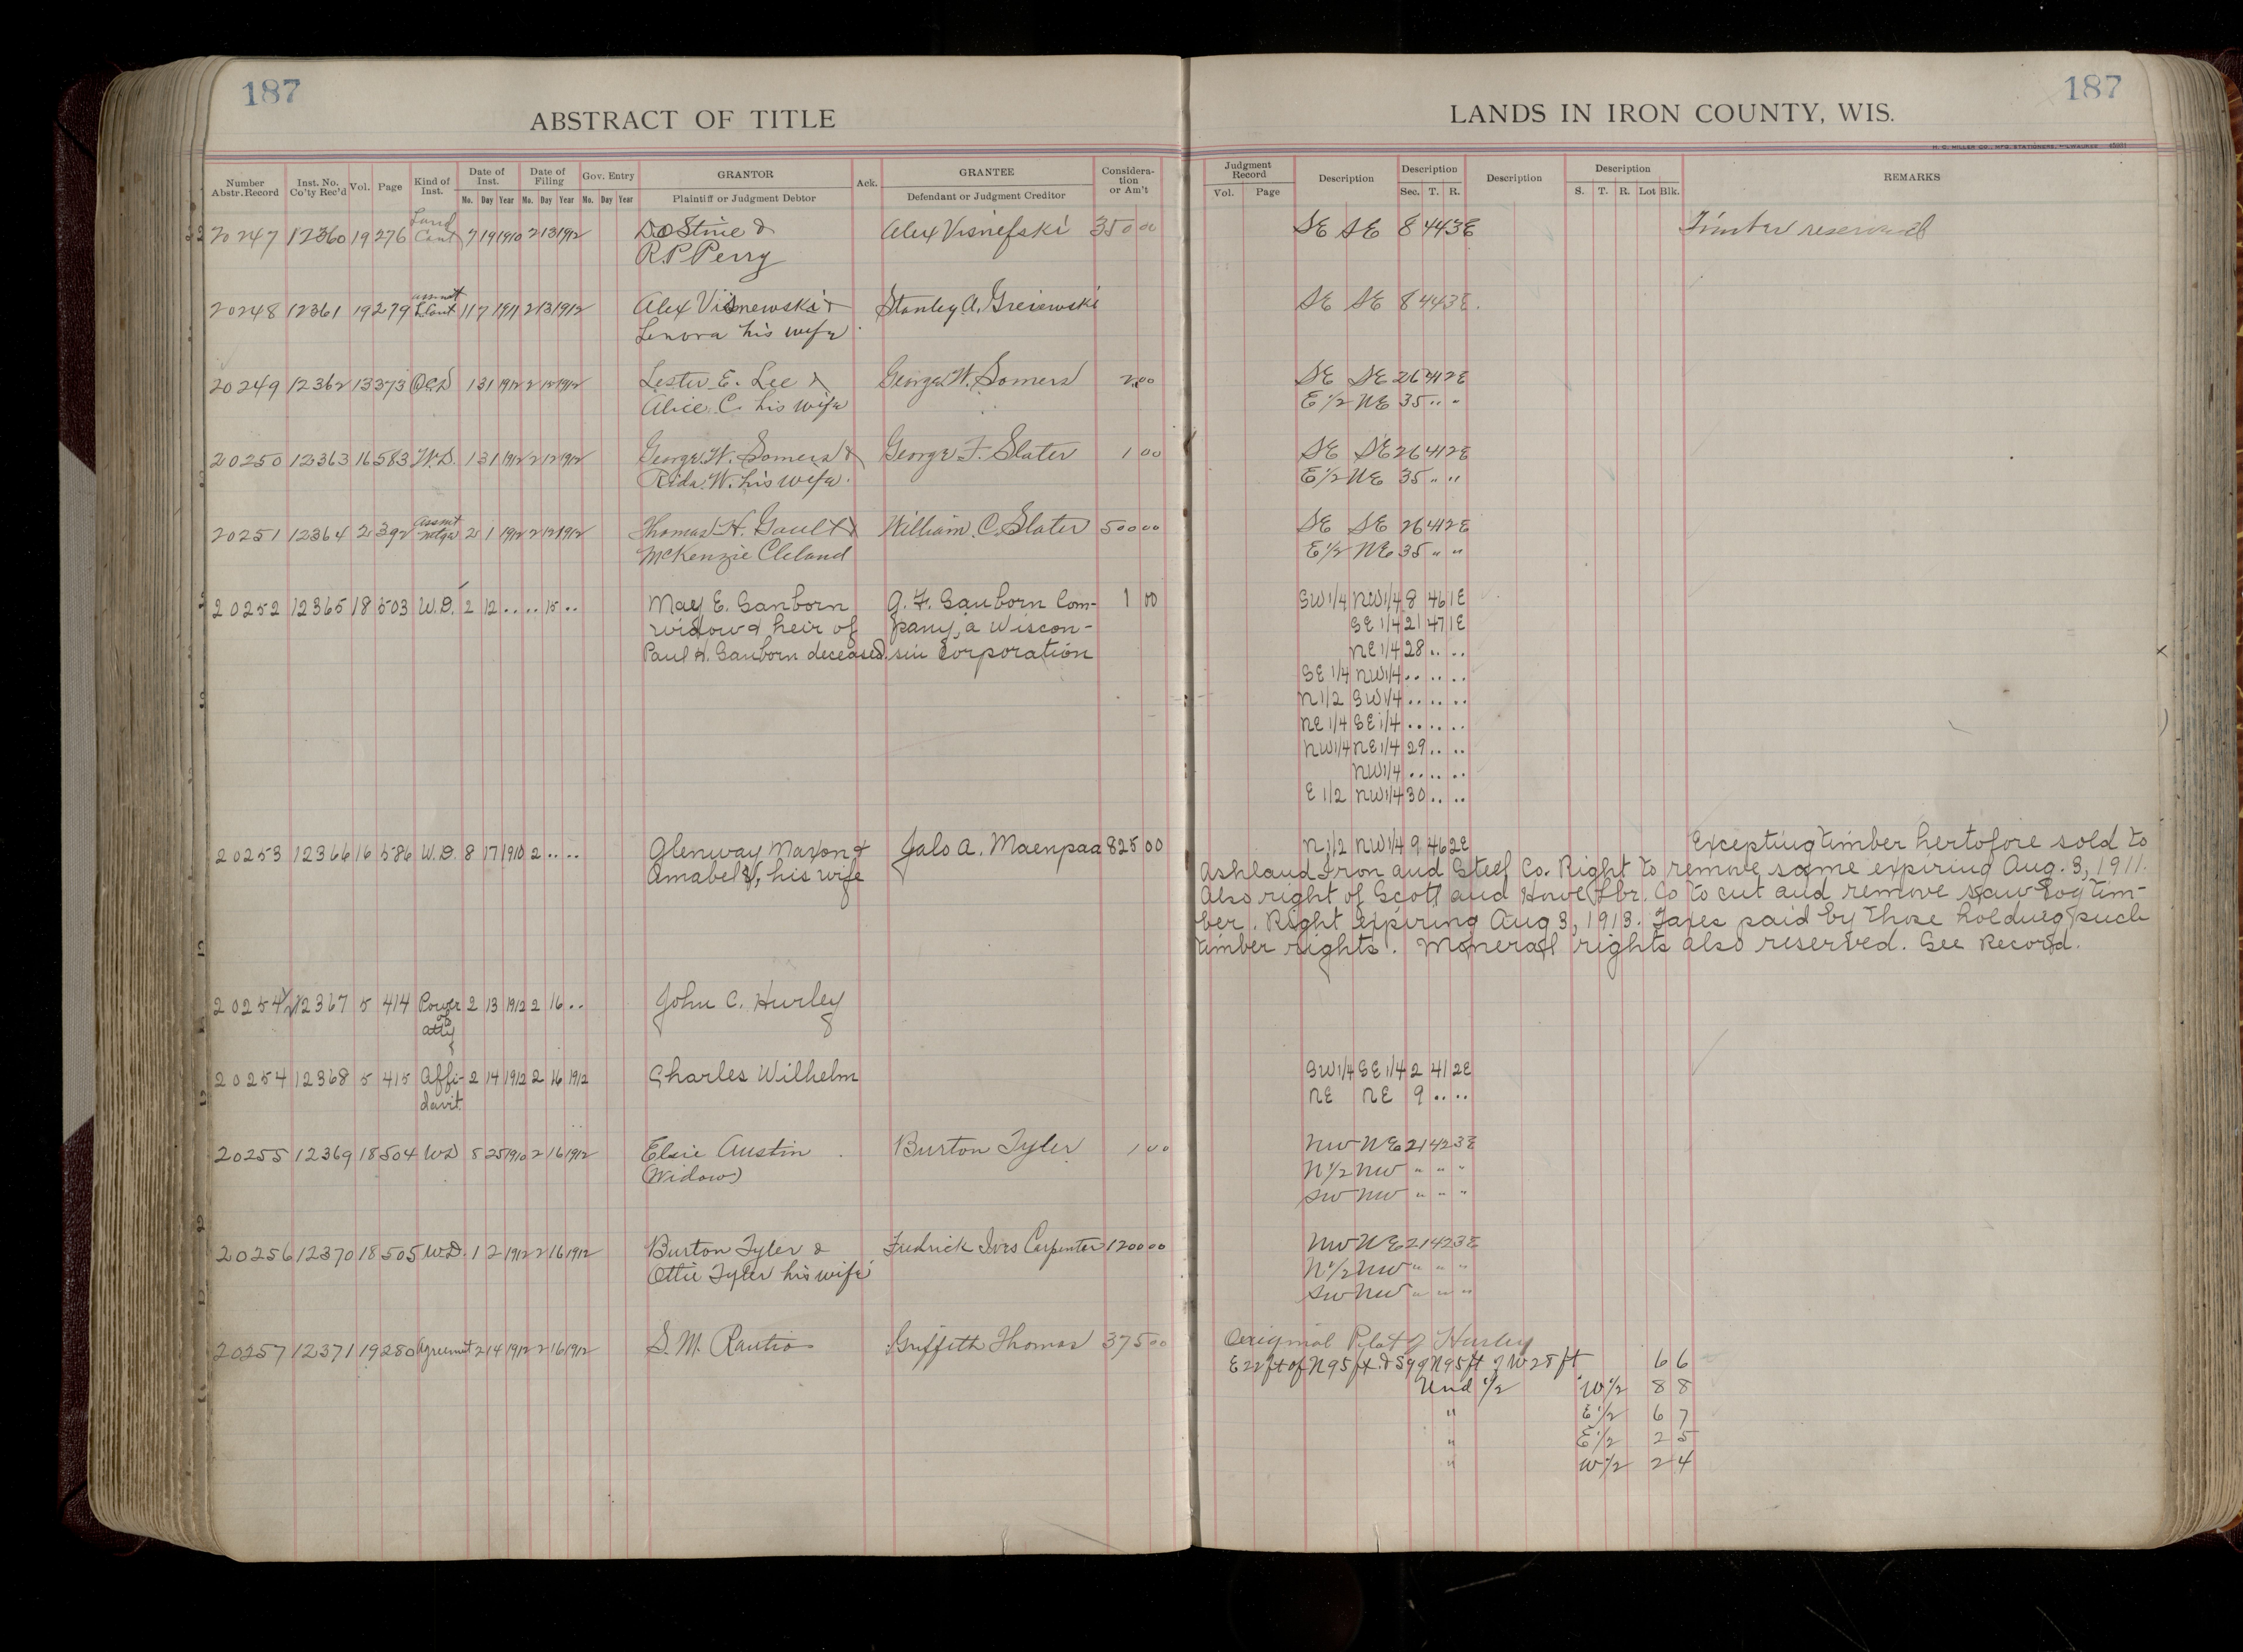 187
187
ABSTRACT OF TITLE
LANDS IN IRON COUNTY, WIS.
Number Abstr. Record Inst. No. Co'ty Rec'd Vol. Page Kind of Inst. Date of Inst. Date of Filing Gov. Entry GRANTOR Ack. GRANTEE Consideration or Am't
Mo. Day Year Mo. Day Year Mo. Day Year Plaintiff or Judgment Debtor Defendant or Judgment Creditor
Judgment Record Description Description Description Description REMARKS
Vol. Page Sec. T. R. S. T. R. Lot Blk.
20247 12360 19 276 Land Cont 7 19 1910 2 13 1912 Stine & Alex Visnefski 350 00 SE SE 8 44 3E Timber reserved
R.P. Perry
20248 12361 19 279 assmt L Cont 11 7 1911 2 13 1912 Alex Visnewski & Stanley A. Greiewski SE SE 8 44 3E.
Lenora his wife
20249 12362 13 373 QCD 1 31 1912 2 12 1912 Lester E. Lee & George W. Somers 2.00 SE SE 26 41 2E
Alice C. his wife E 1/2 NE 35 " "
20250 12363 16 583 W.D. 1 31 1912 2 12 1912 George W. Somers & George F. Slater 1 00 SE SE 26 41 2E
Rida W. his wife. E 1/2 NE 35 " "
20251 12364 2 392 Assmt mtge 2 1 1912 2 12 1912 Thomas H. Gault & William C. Slater 500 00 SE SE 26 41 2E
McKenzie Cleland E 1/2 NE 35 " "
20252 12365 18 503 W.D. 2 12 .. .. 15 .. May E. Sanborn A. F. Sanborn Com- 1 00 SW1/4 NW1/4 8 46 1E
widow & heir of pany, a Wiscon- SE 1/4 21 47 1E
Paul H. Sanborn deceased. sin Corporation NE 1/4 28 .. ..
SE 1/4 NW1/4 .. .. ..
N 1/2 SW1/4 .. .. ..
NE 1/4 SE 1/4 .. .. ..
NW1/4 NE 1/4 29 .. ..
NW1/4 .. .. ..
E 1/2 NW1/4 30 .. ..
20253 12366 16 586 W.D. 8 17 1910 2 .. .. Glenway Maxon & Jalo A. Maenpaa 825 00 N 1/2 NW1/4 9 46 2E Excepting timber hertofore sold to
Amabel, his wife
Ashland Iron and Steel Co. Right to remove same expiring Aug. 3, 1911.
Also right of Scott and Howe Lbr. Co to cut and remove saw log tim-
ber. Right expiring Aug 3, 1913. Taxes paid by those holding such
timber rights. Mineral rights also reserved. See Record.
20254 1/2 12367 5 414 Power of atty 2 13 1912 2 16 .. John C. Hurley
20254 12368 5 415 Affi- 2 14 1912 2 16 1912 Charles Wilhelm SW1/4 SE 1/4 2 41 2E
davit. NE NE 9 .. ..
20255 12369 18 504 WD 8 25 1910 2 16 1912 Elsie Austin Burton Tyler 1 00 NW NE 21 42 3E
(Widow) N 1/2 NW " " "
SW NW " " "
20256 12370 18 505 W.D. 1 2 1912 2 16 1912 Burton Tyler & Fredrick Ives Carpenter 1200 00 NW NE 21 42 3E
Ottie Tyler his wife N 1/2 NW " " "
SW NW " " "
20257 12371 19 280 Agreemt 2 14 1912 2 16 1912 S. M. Rautio Griffith Thomas 375 00 Original Plat of Hurley
E 22 ft of N 95 ft. & S 9 of N 95 ft of W 28 ft 6 6
Und 1/2 W 1/2 8 8
" E 1/2 6 7
" E 1/2 2 5
" W 1/2 2 4